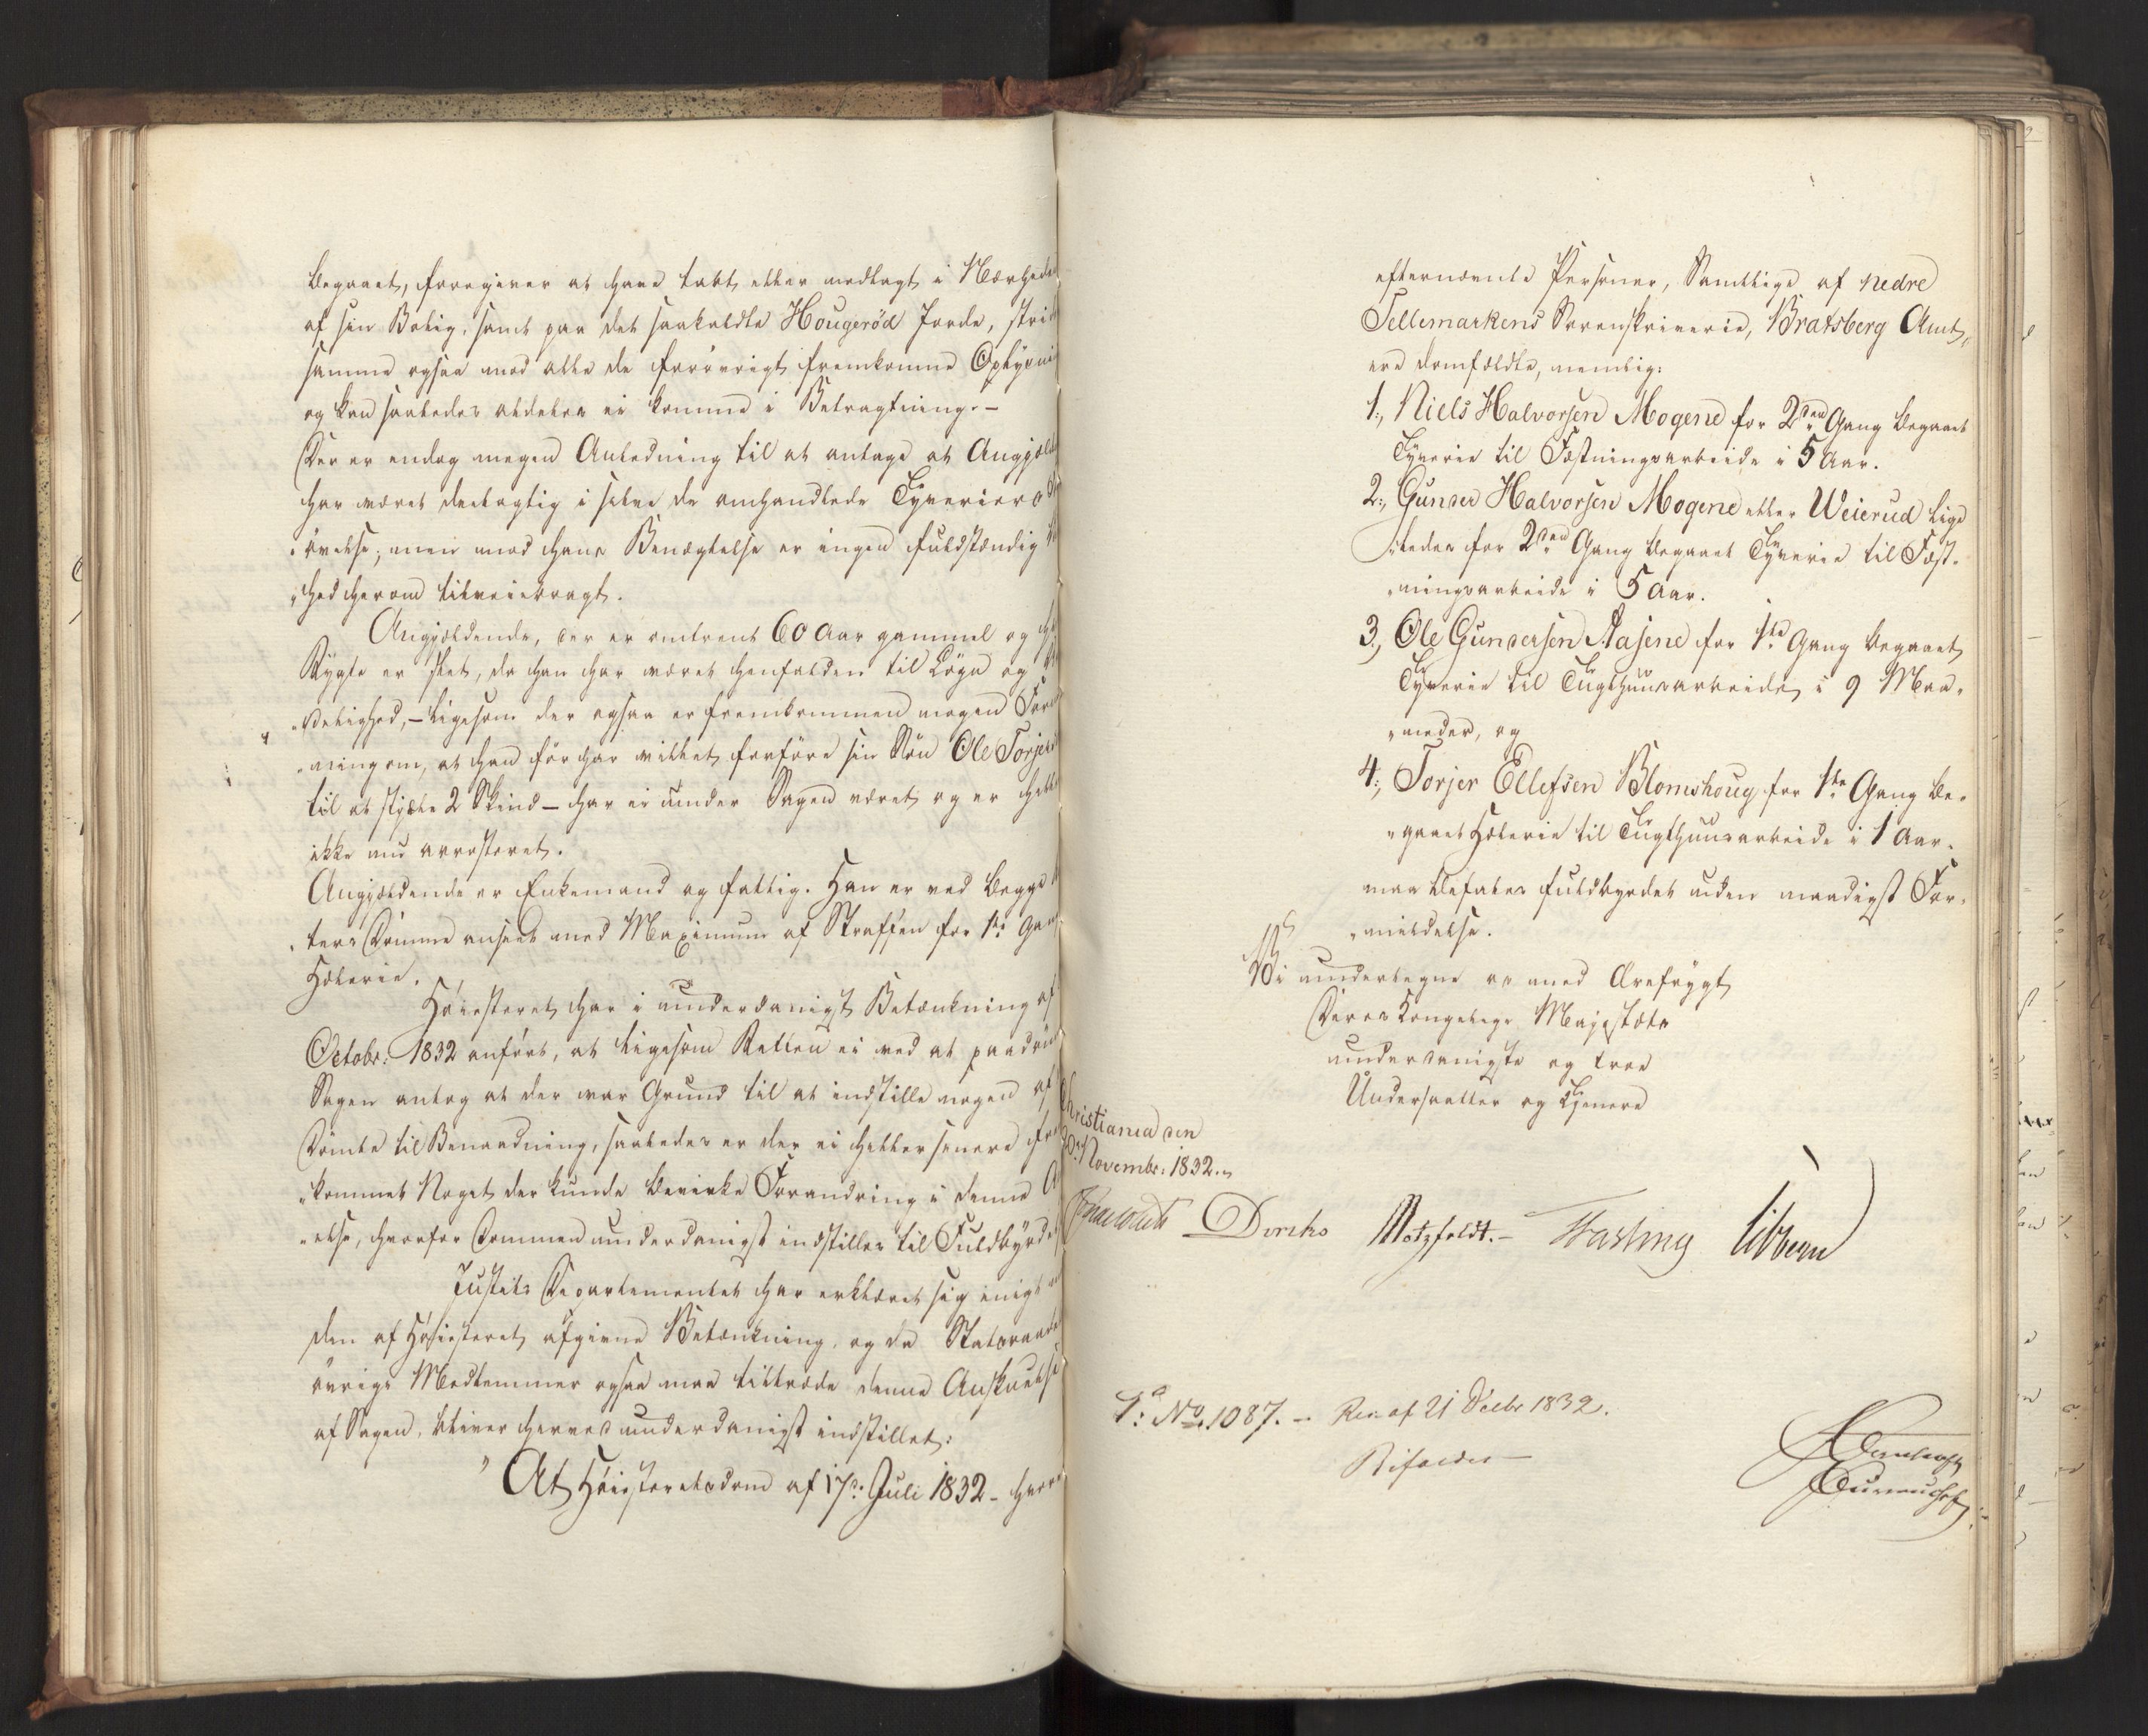 begaaet, foregiver at have tabt eller modtagt i Nærhede
af sin Bolig, samt paa det saakaldte Hougeröd Jorde, strid
samme ogsaa mod alle de forövrigt fremkomne Oplysni
og kan saaledes aldeles ei komme i Betragtning. –
Der er endog megen Anledning til at antage at Angjæld
har været deelagtig i selve de omhandlede Tyveriers
övelse; men mod hans Benægtelse er ingen fuldstændig
„hed herom tilveiebragt.
Angjældende, der er omtrent 60 Aar gammel og
Rygte er slet, da han har været henfalden til Løgn og
„delighed, – ligesom der ogsaa er fremkommen nogen Form
„ning om, at han för har villet forföre sin Sön Ole Torjers
til at stjæle 2 Skind – har ei under Sagen været og er heller
ikke nu arresteret.
Angjældende er Enkemand og fattig. Han er ved begge
„ters Domme anseet med Maximum af Straffen for 1ste Gang
Hæleri.
Höiesteret har i underdanigst Betænkning af
Octobr: 1832 anfört, at ligesom Retten ei ved at paadöm
Sagen antog at der var Grund til at indstille nogen af
Dömte til Benaadning, saaledes er der ei heller senere fre
„kommet Noget der kunde bevirke Forandring i denne
„else, hvorfor Dommen underdanigst indstilles til Fuldbyrdel
Justits Departementet har erklæret sig enigt
den af Höiesteret afgivne Betænkning, og da Statsraadet
övrige Medlemmer ogsaa maa tiltræde denne Anskuelse
af Sagen, bliver herved underdanigst indstillet:
„At Höiesteretsdom af 17de Juli 1832 – hvor
efternævnte Personer, Samtlige af nedre
Tellemarkens Sorenskriverie, Bratsberg Amt,
ere domfældte, nemlig:
1., Niels Halvorsen Mogene for 2den Gang begaaet
Tyverie til Fæstningsarbeide i 5 Aar.
2., Gunder Halvorsen Mogene eller Weierud lige
„ledes for 2den Gang begaaet Tyverie til Fæst„
„ningsarbeide i 5 Aar.
3., Ole Gundersen Aasene for 1ste Gang begaaet
Tyverie til Tugthuusarbeide i 9 Maa„
„neder, og
4., Torjer Ellefsen Blomshoug for 1ste Gang be„
„gaaet Hælerie til Tugthuusarbeide i 1 Aar.
maa befales fuldbyrdet uden naadigst For„
„mildelse.
Vi undertegne os med Ærefrygt
Deres Kongelige Majestæts
underdanigste og troe
Undersaatter og Tjenere
Christiania den
Novembr: 1832.
Diriks Motzfeldt. – Fasting Sibbern
No. 1087. – Res. af 21 Decbr 1832.
Bifaldes –